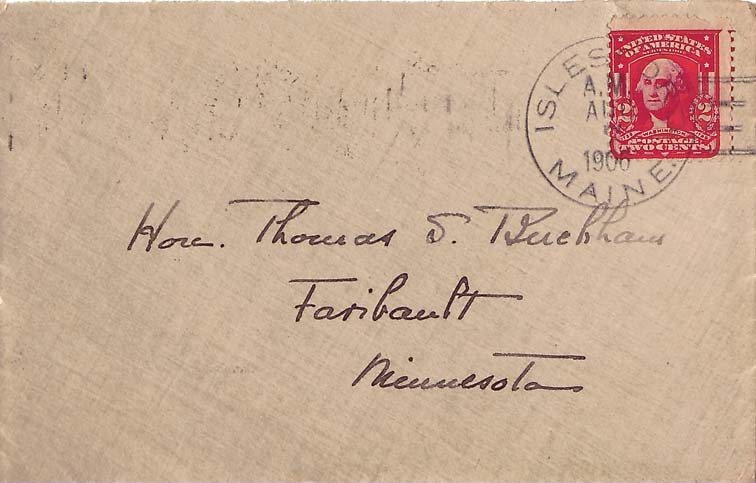 UNITED STATES
OF AMERICA
WASHINGTON
POSTAGE
TWO CENTS
2 2
A.M.
1906
MAINE.
Hon. Thomas S. Buckham
Faribault
Minnesota